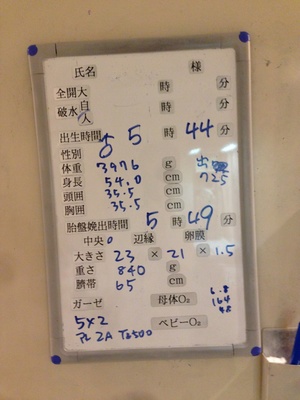 氏名 様
全開大 時 分
破水 自 人 時 分
出生時間 5 時 44 分
性別 ♂
体重 3976 g 出
身長 54.0 cm 725
頭囲 35.5 cm
胸囲 35.5 cm
胎盤娩出時間 5 時 49 分
中央 辺縁 卵膜
大きさ 23 × 21 × 1.5
重さ 840 g
臍帯 65 cm
6.8
164
48
ガーゼ 母体O₂
5×2 ベビーO₂